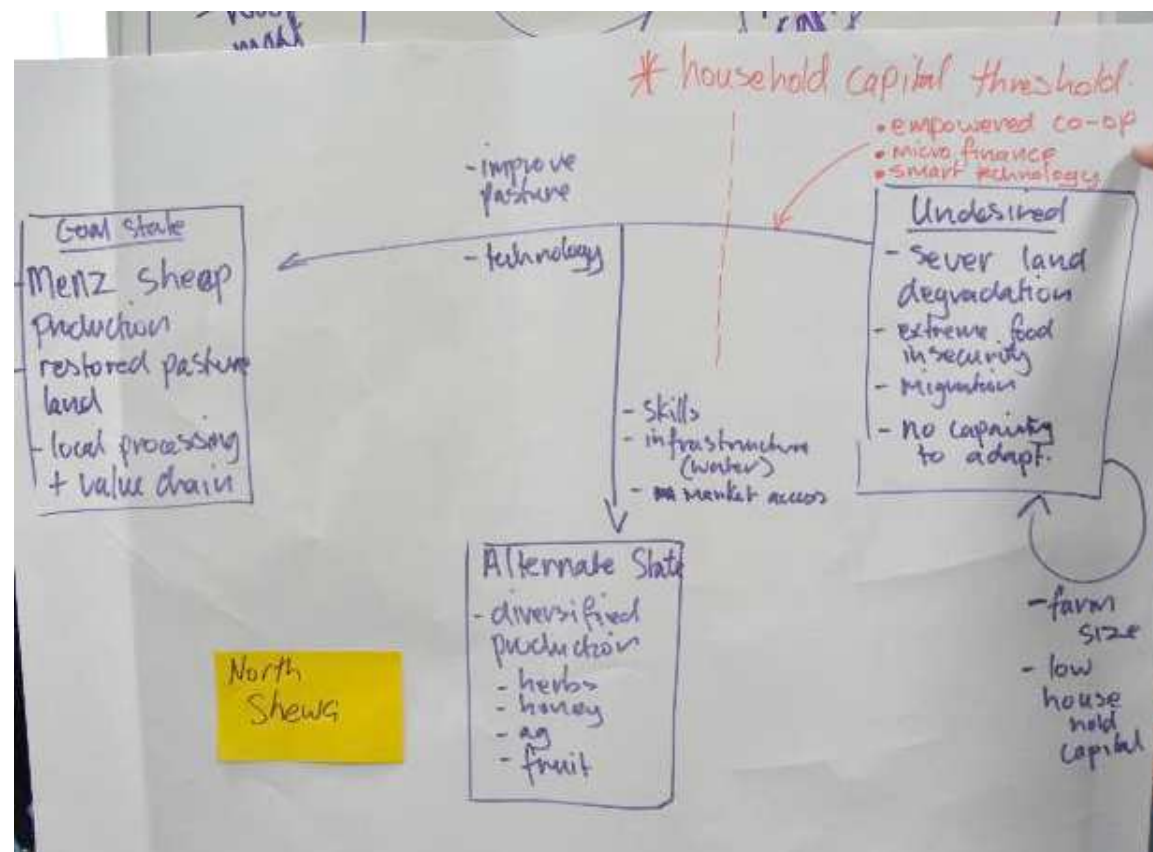 * household capital threshold.
• empowered co-op
• micro finance
• smart technology
- improve
pasture
- technology
Goal State
- Menz sheep
production
- restored pasture
land
- local processing
+ value chain
Undesired
- Sever land
degradation
- extreme food
insecurity
- Migration
- no capainty
to adapt.
- Skills
- infrastructure
(water)
- market access
Alternate State
- diversified
production
- herbs
- honey
- ag
- fruit
- farm
size
- low
house
hold
capital
North
Shewa